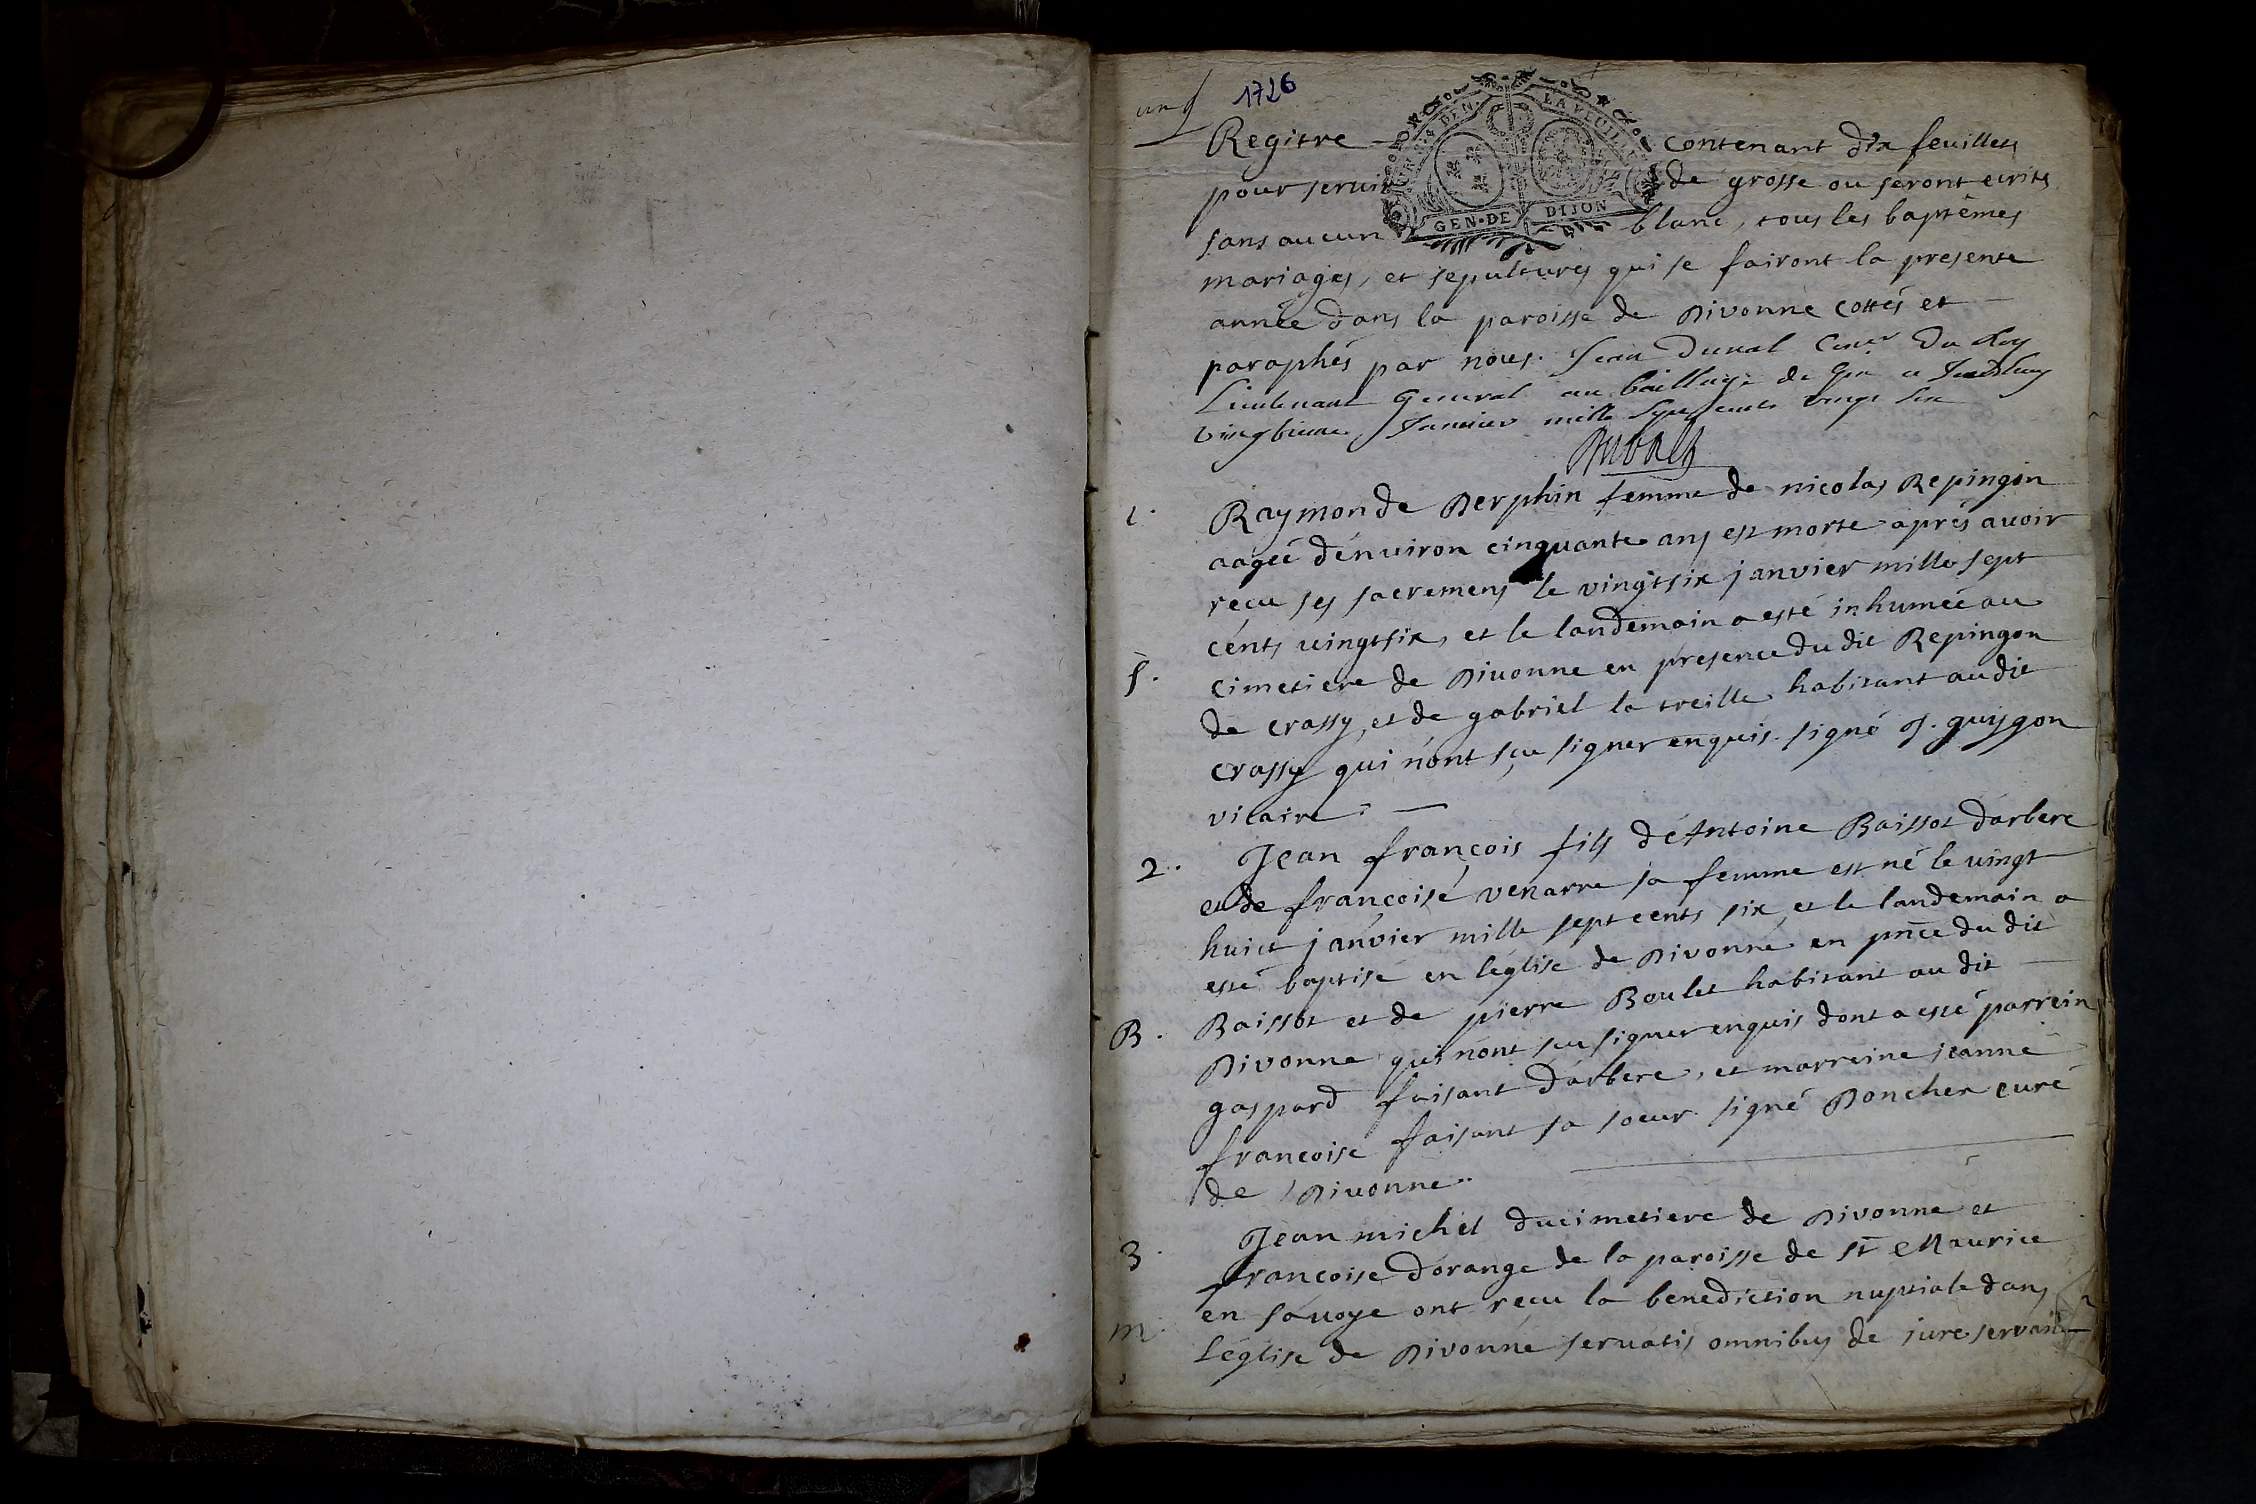 un
1726
GEN • DE DIJON
Regitre contenant dix feuillets
pour servir de grosse ou seront ecrits
sans aucun blanc, tous les baptêmes
mariages, et sepultures qui se fairont la presente
année dans la paroisse de Divonne cottés et
paraphés par nous. Jean Duval Con.er du Roy
Lieutenant General au bailliage de Gex ce
vingtieme Janvier mille Sept cents vingt six
Duval
1. Raymonde Derphin femme de nicolas Repingon
aagée dénviron cinquante ans est morte aprés avoir
recu ses sacremens le vingtsix janvier mille sept
cénts vingtsix, et le landemain a esté inhumée au
S. cimetiere de Divonne en presence du dit Repingon
de crassy, et de gabriel la treille habitant au dit
crassy qui nónt sçu signer enquis. signé J. guygon
vicaire.
2. Jean françois fils dé Antoine Baissot dárbere
et de françoisé venarre sa femme est né le vingt
huict janvier mille sept cents six, et le landemain a
esté baptisé en léglise de Divonne en pn̄ce du dit
B. Baissot et de pierre Boulet habitant au dit
Divonne qui nónt scu signer enquis dont a esté parrein
gaspard faisant dárbere, et marreine jeanne
francoise faisant sa soeur signé Poncher curé
de Divonne.
3 Jean michel du cimetiere de Divonne et
francoise dorange de la paroisse de st Maurice
en savoye ont recu la benediction nuptiale dans
m. Léglise de Divonne servatis omnibus de jure servandis